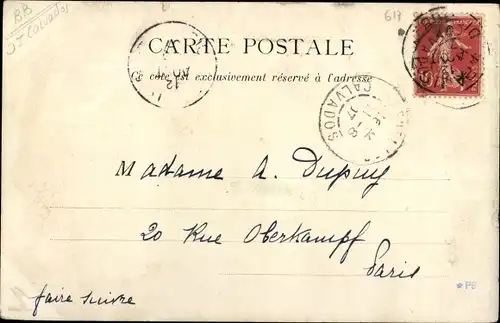 BB
Calvados
617
CARTE POSTALE
Ce côté est exclusivement réservé à l'adresse
12
CALVADOS
Madame A. Dupuy
20 Rue Oberkampf
Paris
faire suivre